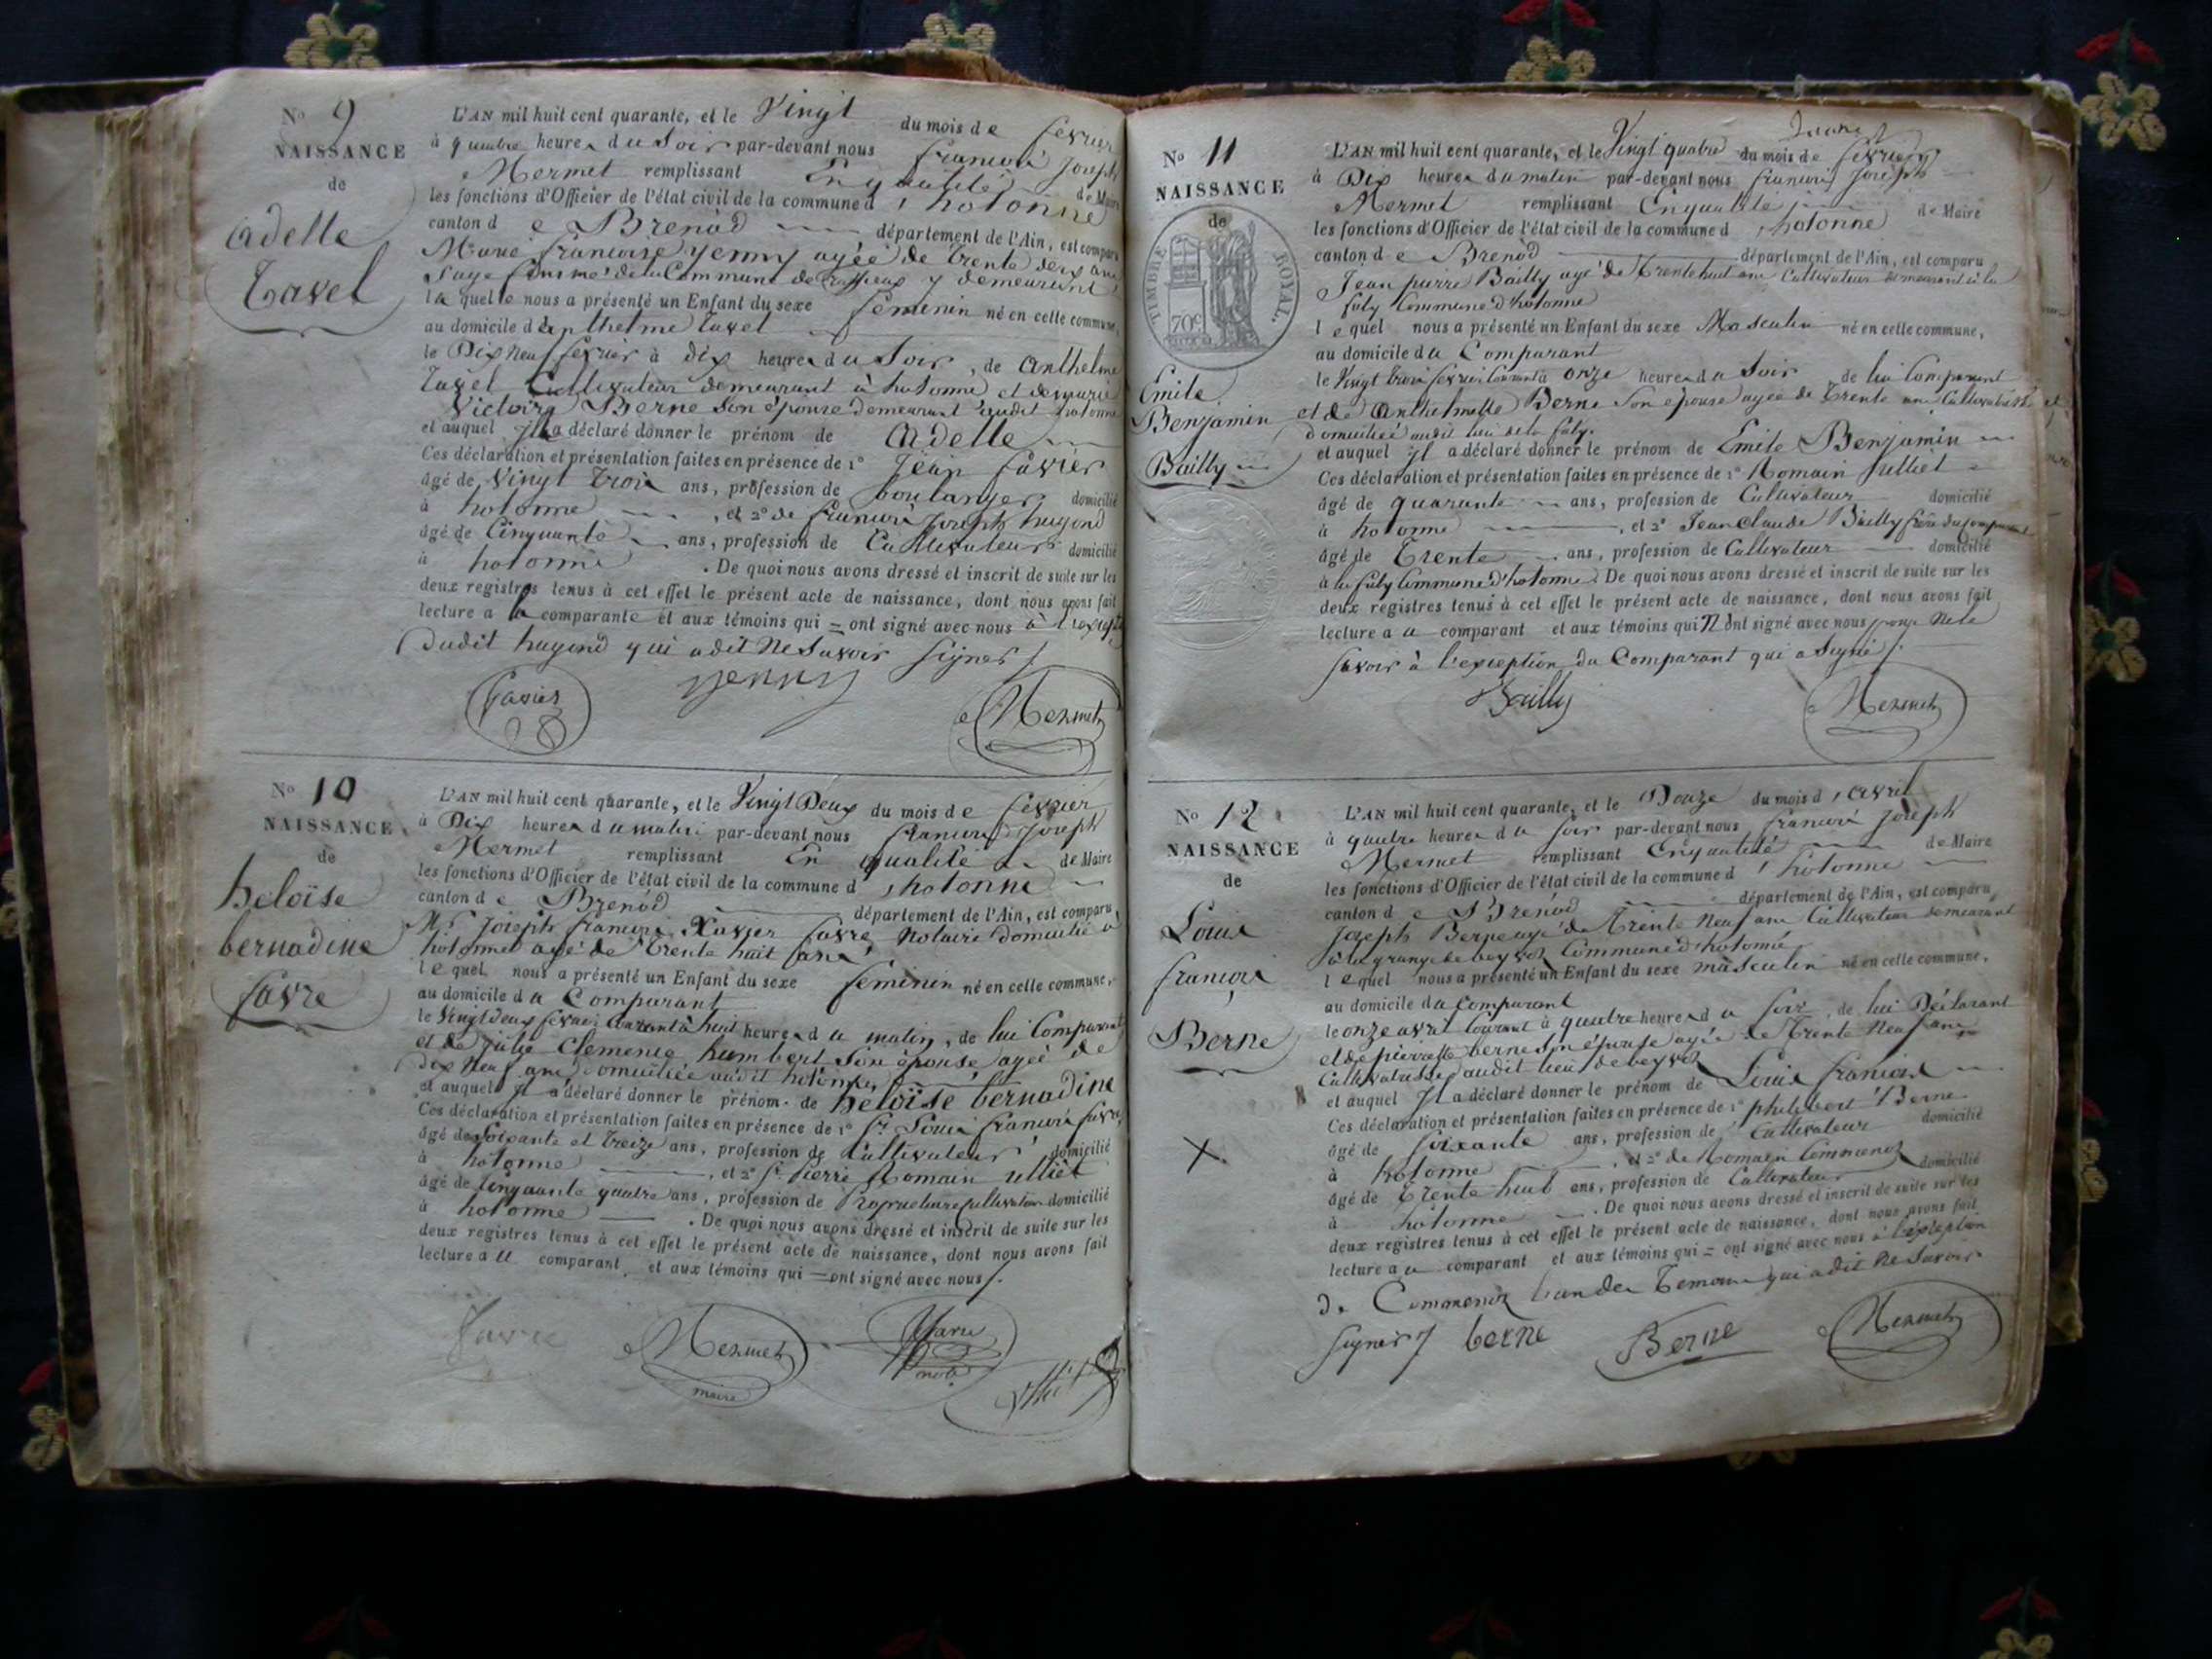 No 9
NAISSANCE
de
Adelle
Tavel
L'AN mil huit cent quarante, et le Vingt du mois de fevrier
à quatre heures du Soir par-devant nous francois Joseph
Mermet remplissant En qualité de Maire
les fonctions d'Officier de l'état civil de la commune d'hotonne
canton de Brenod département de l'Ain, est comparu
Marie francoise Jenny agée de trente deux ans
Sage femme de la Commune de Ruffieux y demeurant
laquelle nous a présenté un Enfant du sexe feminin né en cette commune,
au domicile d'anthelme Tavel
le Dix Neuf fevrier à dix heures du Soir, de Anthelme
Tavel Cultivateur demeurant à hotonne et de marie
Victoire Berne Son épouse demeurant audit hotonne
et auquel a déclaré donner le prénom de Adelle
Ces déclaration et présentation faites en présence de 1° Jean favrier
âgé de Vingt Trois ans, profession de boulanger domicilié
à hotonne, et 2° de francois Joseph hugond
âgé de Cinquante ans, profession de Cultivateur domicilié
à hotonne. De quoi nous avons dressé et inscrit de suite sur les
deux registres tenus à cet effet le présent acte de naissance, dont nous avons fait
lecture a la comparante et aux témoins qui = ont signé avec nous à l'exception
dudit hugond qui a dit ne Savoir signer /.
Jenny
Mermet
No 10
NAISSANCE
de
heloïse
bernadine
favre
L'AN mil huit cent quarante, et le Vingt Deux du mois de fevrier
à Dix heures du matin par-devant nous francois Joseph
Mermet remplissant En qualité de Maire
les fonctions d'Officier de l'état civil de la commune d'hotonne
canton de Brenod département de l'Ain, est comparu
Mr Joseph francois Xavier favre, Notaire domicilié à
hotonne agé de Trente huit ans
lequel nous a présenté un Enfant du sexe feminin né en cette commune,
au domicile du Comparant
le Vingt deux fevrier Courant à huit heures du matin, de lui Comparant
et de julie Clemence humbert Son épouse agée de
dix Neuf ans domiciliée audit hotonne
et auquel il a déclaré donner le prénom de heloïse bernadine
Ces déclaration et présentation faites en présence de 1° Sr Louis francois favre
âgé de Soixante et treize ans, profession de Cultivateur domicilié
à hotonne, et 2° Sr Pierre Romain Julliet
âgé de Cinquante quatre ans, profession de Proprietaire Cultivateur domicilié
à hotonne. De quoi nous avons dressé et inscrit de suite sur les
deux registres tenus à cet effet le présent acte de naissance, dont nous avons fait
lecture au comparant et aux témoins qui = ont signé avec nous /.
favre
Mermet
maire
favre
not
No 11
NAISSANCE
de
TIMBRE ROYAL.
70c
Emile
Benjamin
Bailly
L'AN mil huit cent quarante, et le Vingt quatre du mois de fevrier
à Dix heures du matin par-devant nous francois Joseph
Mermet remplissant En qualité de Maire
les fonctions d'Officier de l'état civil de la commune d'hotonne
canton de Brenod département de l'Ain, est comparu
Jean pierre Bailly agé de trente huit ans Cultivateur demeurant à la
faly Commune d'hotonne
lequel nous a présenté un Enfant du sexe Masculin né en cette commune,
au domicile du Comparant
le Vingt trois fevrier Courant à onze heures du Soir de lui Comparant
et de Anthelmette Berne Son épouse agée de Trente ans Cultivatrice
domiciliée audit lieu de la faly.
et auquel il a déclaré donner le prénom de Emile Benjamin
Ces déclaration et présentation faites en présence de 1° Romain Julliet
âgé de quarante ans, profession de Cultivateur domicilié
à hotonne, et 2° Jean Claude Bailly frère du Comparant
âgé de Trente ans, profession de Cultivateur domicilié
à la faly Commune d'hotonne. De quoi nous avons dressé et inscrit de suite sur les
deux registres tenus à cet effet le présent acte de naissance, dont nous avons fait
lecture au comparant et aux témoins qui N'ont signé avec nous pour ne le
savoir à l'exception du Comparant qui a Signé /.
Bailly
Mermet
No 12
NAISSANCE
de
Louis
francois
Berne
X
L'AN mil huit cent quarante, et le Douze du mois d'avril
à quatre heures du soir par-devant nous francois joseph
Mermet remplissant En qualité de Maire
les fonctions d'Officier de l'état civil de la commune d'hotonne
canton de Brenod département de l'Ain, est comparu
Joseph Berne agé de trente Neuf ans Cultivateur demeurant
à la grange de Commune d'hotonne
lequel nous a présenté un Enfant du sexe masculin né en cette commune,
au domicile du Comparant
le onze avril Courant à quatre heures du soir, de lui Déclarant
et de pierrette berne son épouse agée de Trente Neuf ans
Cultivatrice audit lieu de
et auquel il a déclaré donner le prénom de Louis francois
Ces déclaration et présentation faites en présence de 1° philibert Berne
âgé de soixante ans, profession de Cultivateur domicilié
à hotonne, et 2° de Romain
âgé de Trente huit ans, profession de Cultivateur domicilié
à hotonne. De quoi nous avons dressé et inscrit de suite sur les
deux registres tenus à cet effet le présent acte de naissance, dont nous avons fait
lecture au comparant et aux témoins qui = ont signé avec nous à l'exception
de l'un des Temoins qui a dit ne Savoir
signer / berne Berne Mermet